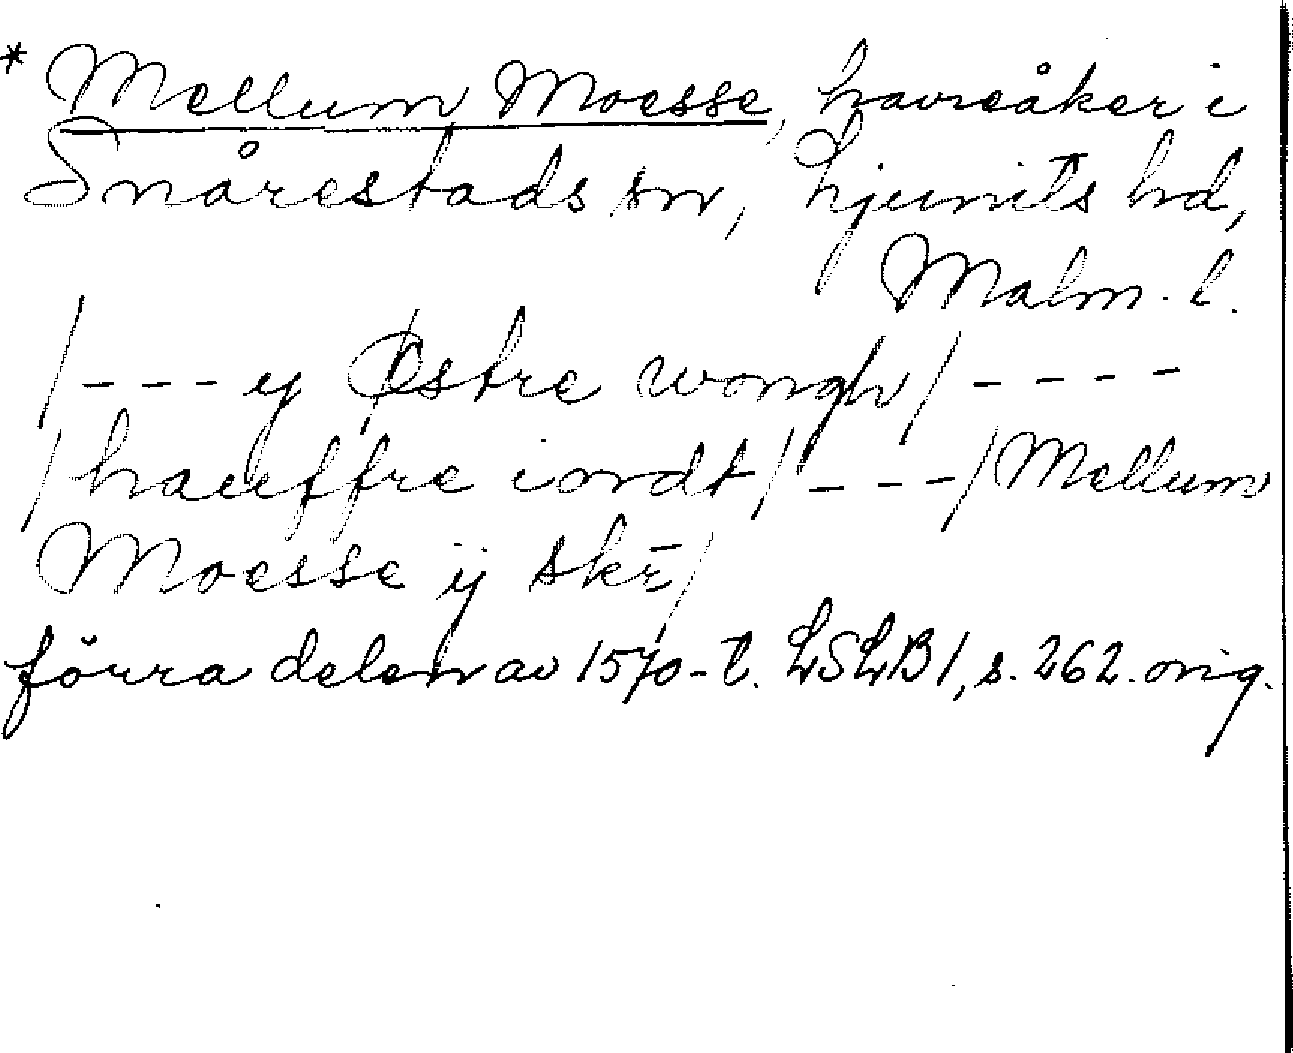 * Mellum Moesse, havreåker i
Snårestads sn, Ljunits hd,
Malm. l.
/ - - - y Østre wongh / - - - -
/ haeffre iordt / - - - / Mellum
Moesse ij skr̄ /
förra delen av 1570-t. LSLB 1, s. 262. orig.